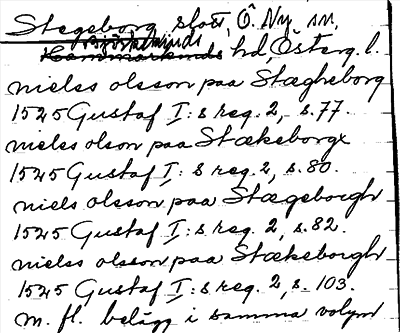 Stegeborg slott, Ö. Ny sn,
Björkekinds
Hammarkinds hd, Österg. l.
niels olsson paa Stægheborg
1525 Gustaf I:s reg. 2, s. 77.
niels olson paa Stækeborgx
1525 Gustaf I:s reg. 2, s. 80.
niels olsson paa Stægeborgh
1525 Gustaf I:s reg. 2, s. 82.
nieles olsson paa Stækeborgh
1525 Gustaf I:s reg. 2, s. 103.
m. fl. belägg i samma volym